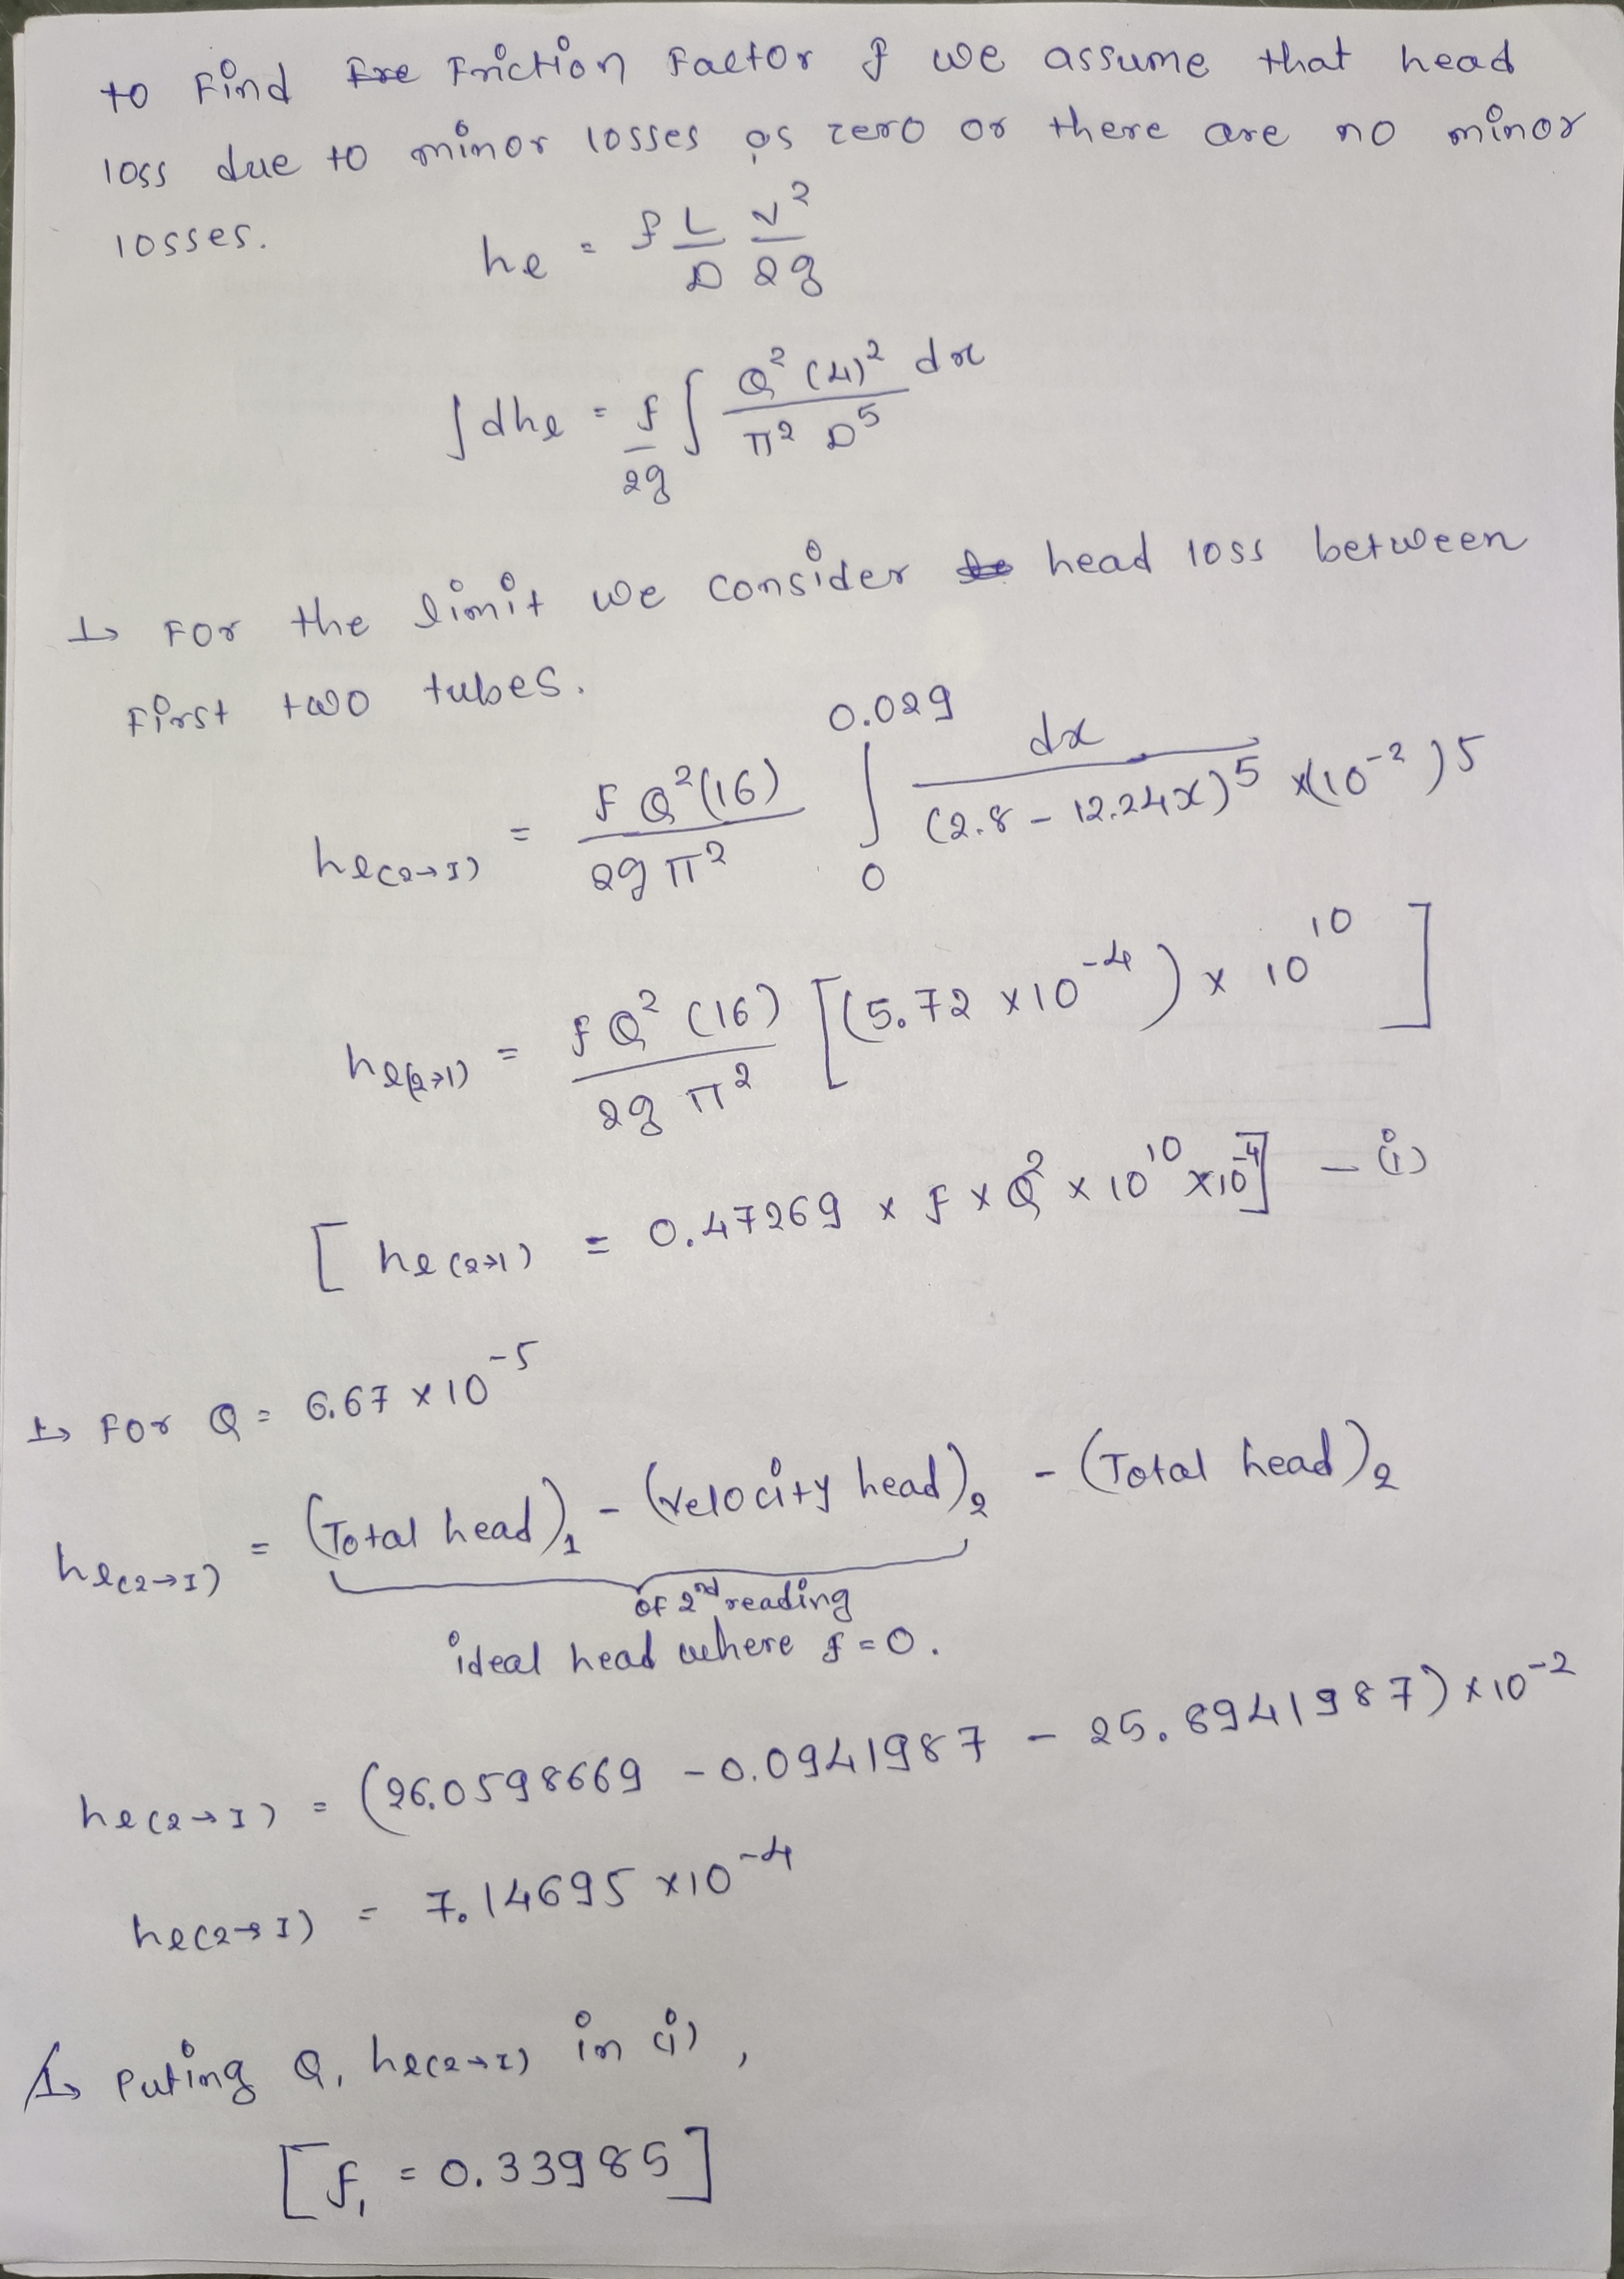 to Find Friction Factor f we assume that head
loss due to minor losses is zero or there are no minor
losses.
he = f L/D V²/2g
∫dhe = f/2g ∫ Q² (4)² dx / π² D⁵
↳ For the limit we consider head loss between
First two tubes.
he(2→1) = f Q²(16) / 2g π² ∫₀^0.029 dx / (2.8 - 12.24x)⁵ x(10⁻²)⁵
he(2→1) = f Q² (16) / 2g π² [(5.72 x10⁻⁴) x 10¹⁰]
[he(2→1) = 0.47269 x f x Q² x 10¹⁰ x10⁻⁴] - (i)
↳ For Q = 6.67 x 10⁻⁵
he(2→1) = (Total head)₁ - (velocity head)₂ - (Total head)₂
of 2nd reading
ideal head where f = 0.
he(2→1) = (26.0598669 - 0.0941987 - 25.8941987) x 10⁻²
he(2→1) = 7.14695 x10⁻⁴
↳ Puting Q, he(2→1) in (i),
[f₁ = 0.33985]